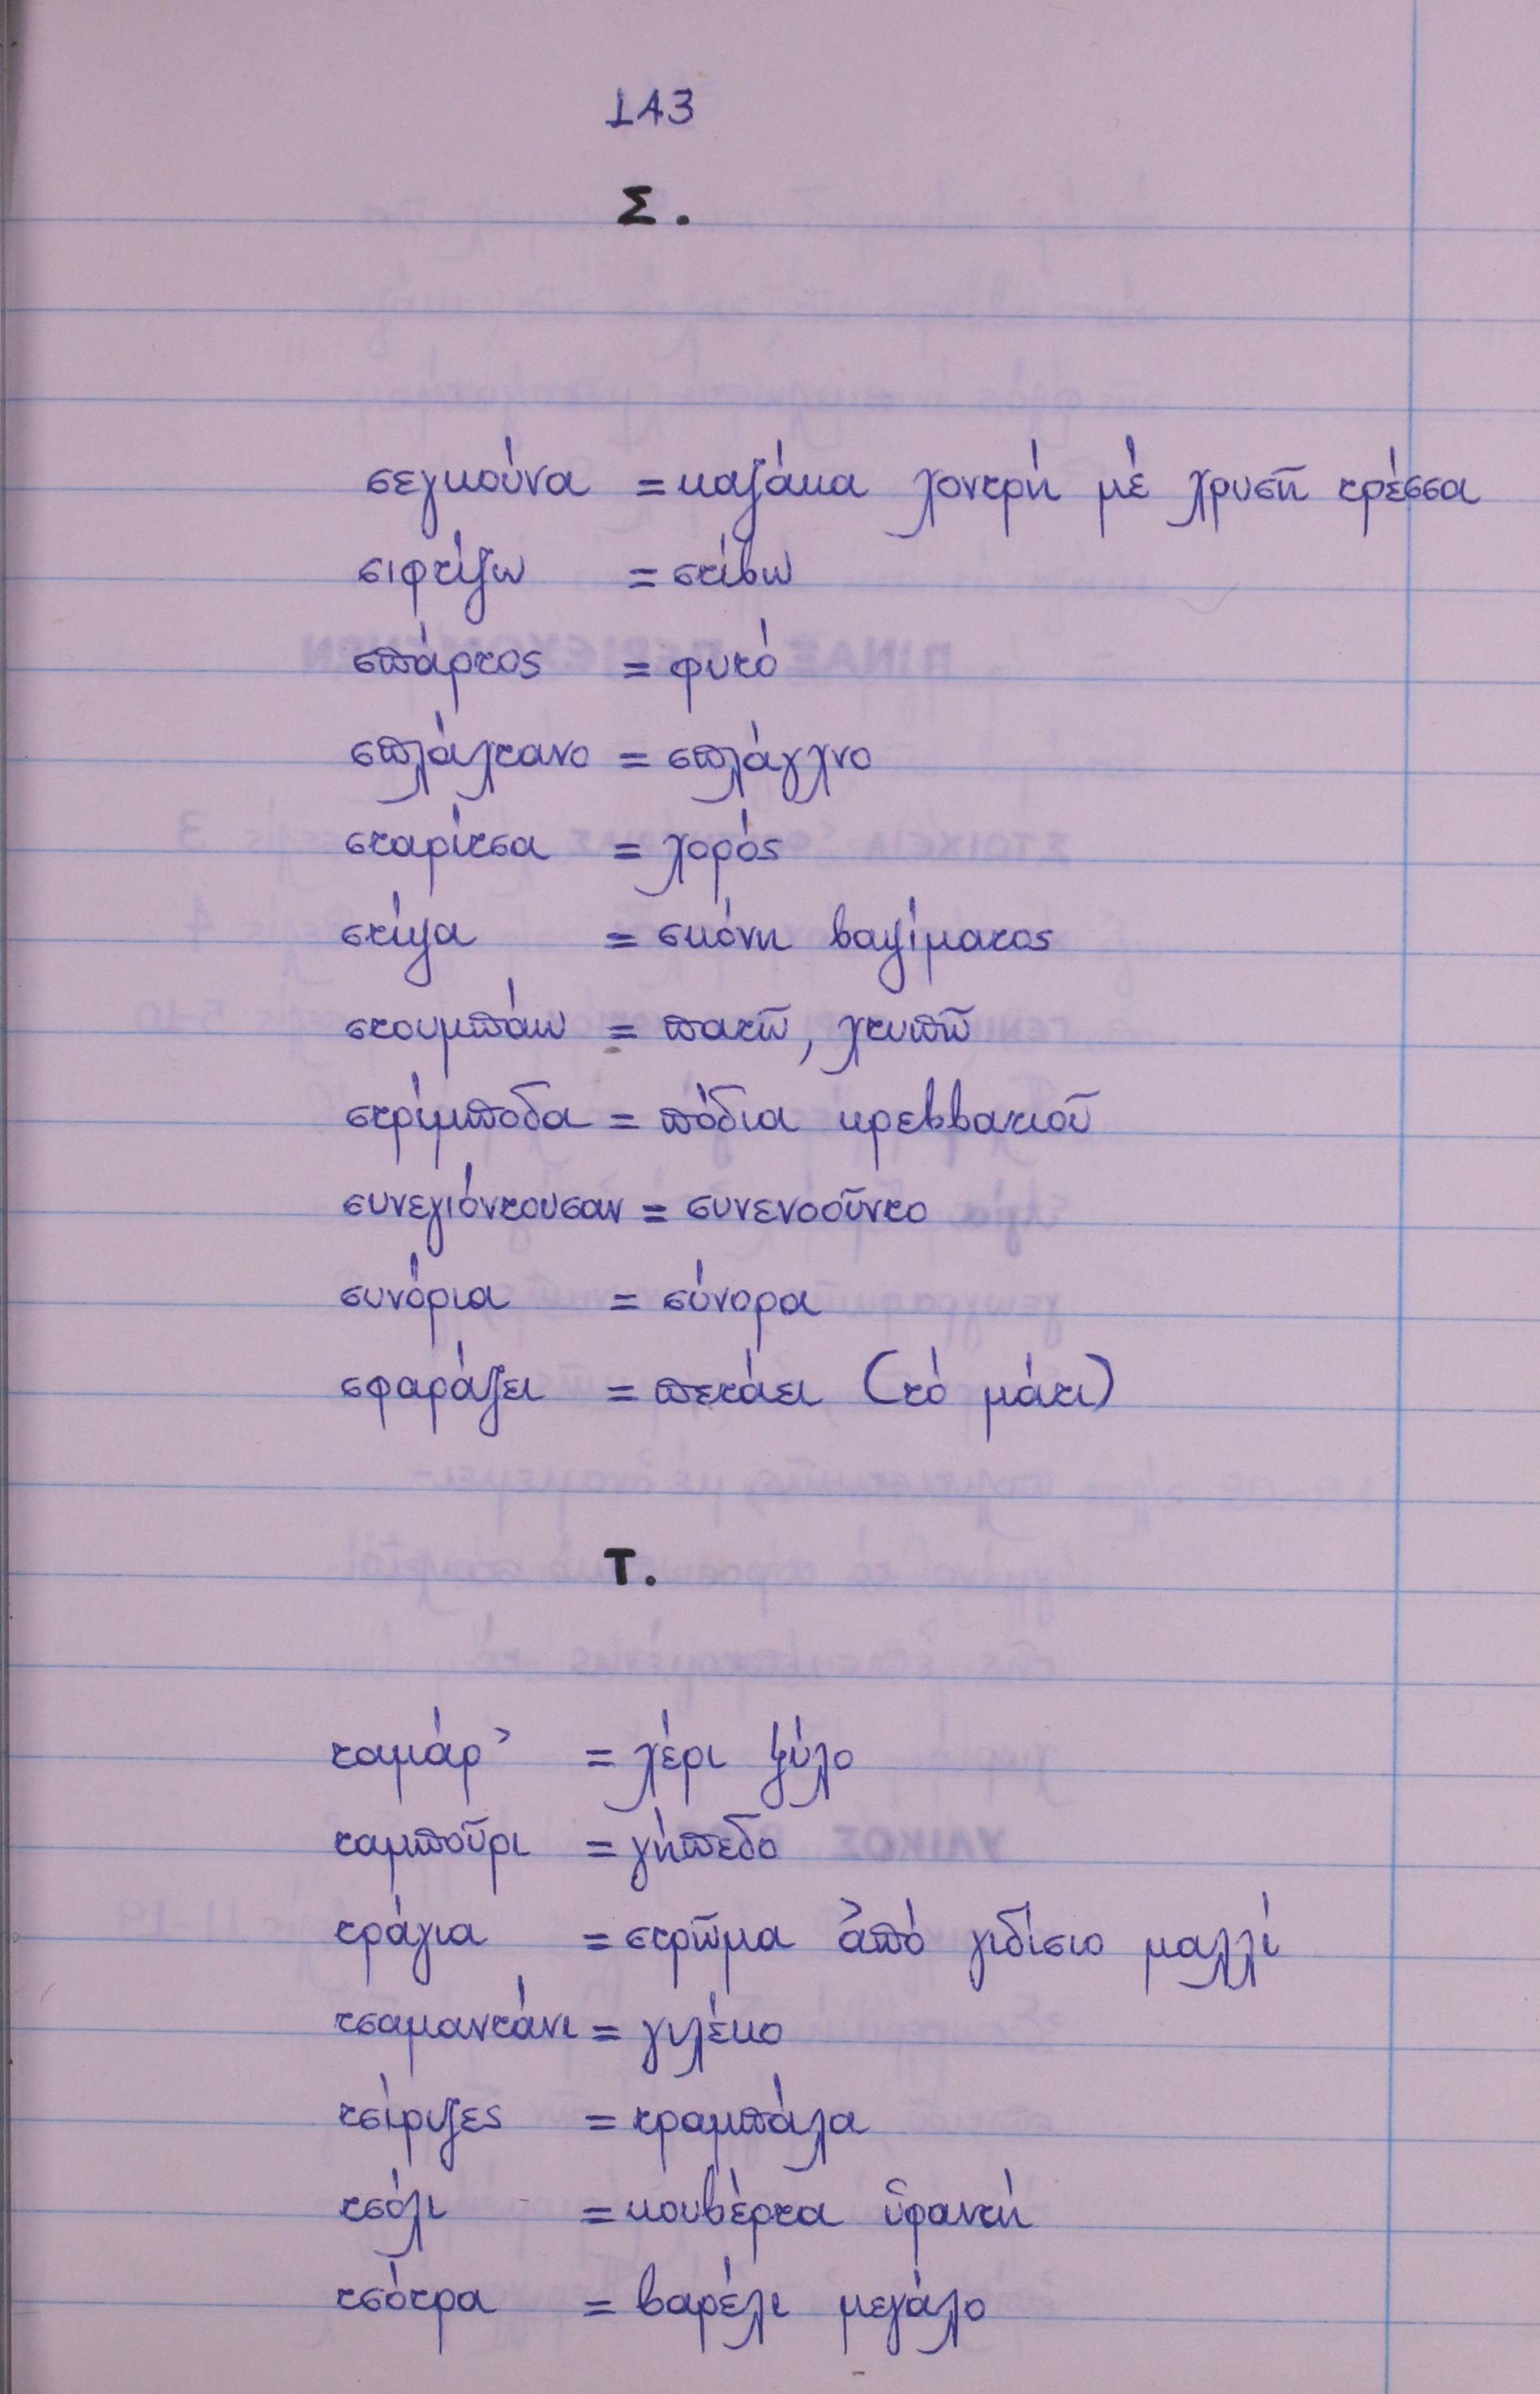 143
Σ.
σεγκούνα = καζάκα χοντρή μέ χρυσῆ τρέσσα
σιφτίζω = στίβω
σπάρτος = φυτό
σπλάχτανο = σπλάγχνο
σταρίτσα = χορός
στίψα = σκόνη βαψίματος
στουμπάω = πατῶ, χτυπῶ
στρίμποδα = πόδια κρεββατιοῦ
συνεγιόντουσαν = συνενοοῦντο
συνόρια = σύνορα
σφαράζει = πετάει (τό μάτι)
Τ.
ταμάρ' = χέρι ξύλο
ταμποῦρι = γήπεδο
τράγια = στρῶμα ἀπό γιδίσιο μαλλί
τσαμαντάνι = γιλέκο
τσίριζες = τραμπάλα
τσόλι = κουβέρτα ὑφαντή
τσότρα = βαρέλι μεγάλο